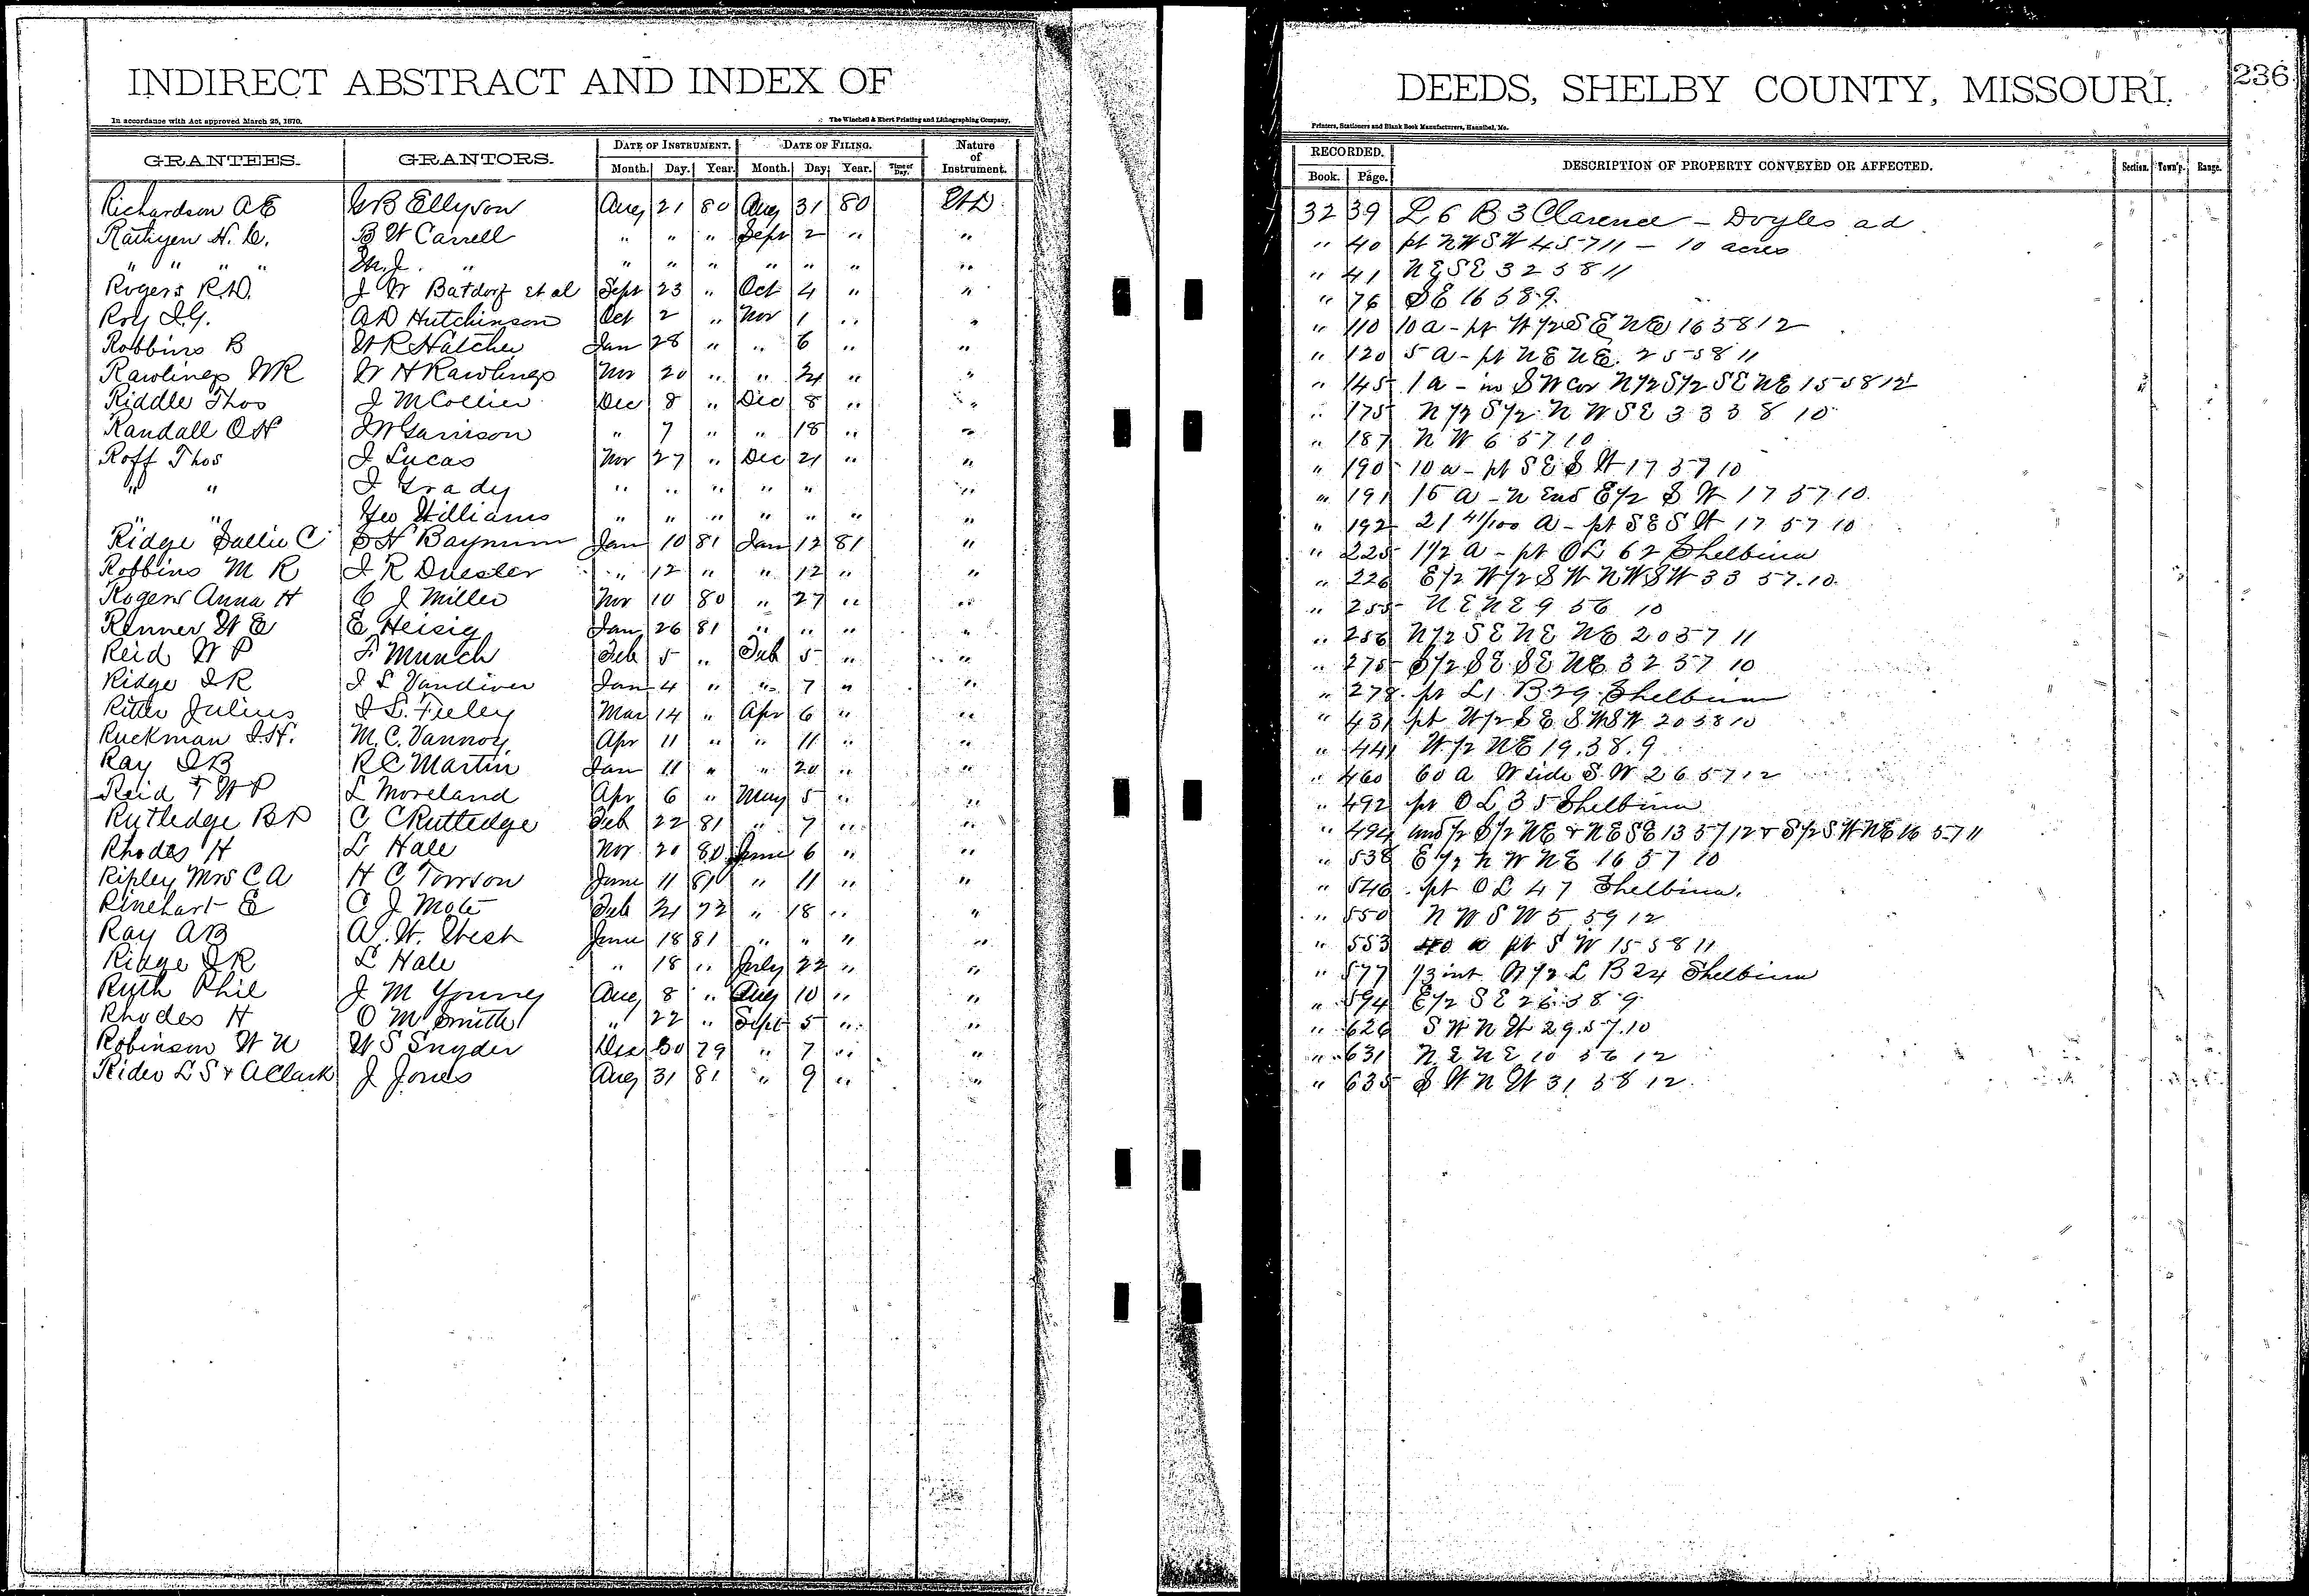 INDIRECT ABSTRACT AND INDEX OF DEEDS, SHELBY COUNTY, MISSOURI. 236
In accordance with Act approved March 25, 1870. The Winchell & Ebert Printing and Lithographing Company, Printers, Stationers and Blank Book Manufacturers, Hannibal, Mo.
GRANTEES. GRANTORS. DATE OF INSTRUMENT. DATE OF FILING. Nature of Instrument. RECORDED. DESCRIPTION OF PROPERTY CONVEYED OR AFFECTED. Section. Town'p. Range.
Month. Day. Year. Month. Day. Year. Time of Day. Book. Page.
Richardson A E G B Ellyson Aug 21 80 Aug 31 80 WD 32 39 L 6 B 3 Clarence - Doyles ad
Rathgen H. C. B W Carrell " " " Sept 2 " " " 40 pt NW SW 4 57 11 - 10 acres
" " " " M. J. " " " " " " " " " 41 NE SE 32 58 11
Rogers R.D. J W Batdorf et al Sept 23 " Oct 4 " " " 76 SE 16 58 9
Roy I.G. A D Hutchinson Oct 2 " Nov 1 " " " 110 10 a - pt W 1/2 SE NE 16 58 12
Robbins B W R Hatcher Jan 28 " " 6 " " " 120 5 a - pt NE NE. 25 58 11
Rawlings W R W H Rawlings Nov 20 " " 24 " " " 145 1 a - in SW Cor N 1/2 S 1/2 SE NE 15 58 12
Riddle Thos J M Collier Dec 8 " Dec 8 " " " 175 N 1/2 S 1/2 NW SE 33 58 10
Randall O H J W Garrison " 7 " " 18 " " " 187 NW 6 57 10
Roff Thos J Lucas Nov 27 " Dec 21 " " " 190 10 a - pt SE SW 17 57 10
" " J Grady " " " " " " " 191 15 a - N End E 1/2 SW 17 57 10
" " Geo Williams " " " " " " " " 192 21 41/100 a - pt SE SW 17 57 10
Ridge Sallie C S H Baynum Jan 10 81 Jan 12 81 " " 225 1 1/2 a - pt OL 62 Shelbina
Robbins M R J R Duester " 12 " " 12 " " " 226 E 1/2 W 1/2 SW NW SW 33 57.10
Rogers Anna H C J Miller Nov 10 80 " 27 " " " 255 NE NE 9 56 10
Renner W E E Heisig Jan 26 81 " " " " " 256 N 1/2 SE NE NE 20 57 11
Reid W P F Munch Feb 5 " Feb 5 " " " 275 S 1/2 SE SE NE 32 57 10
Ridge J R J L Vandiver Jan 4 " " 7 " " " 278 pt L 1 B 29 Shelbina
Ritter Julius J S. Feeley Mar 14 " Apr 6 " " " 431 pt W 1/2 SE SW SW 20 58 10
Ruckman J.H. M. C. Vannoy Apr 11 " " 11 " " " 441 W 1/2 NE 19.58.9
Ray J B R C Martin Jan 11 " " 20 " " " 460 60 a W side S.W 26 57 12
Reid T W P L Moreland Apr 6 " May 5 " " " 492 pt OL 35 Shelbina
Rutledge B P C C Rutledge Feb 22 81 " 7 " " " 494 und 1/2 S 1/2 NE & NE SE 13 57 12 & S 1/2 SW NE 16 57 11
Rhodes H L Hale Nov 20 80 June 6 " " " 538 E 1/2 NW NE 16 57 10
Ripley Mrs C A H C Tomson June 11 81 " 11 " " " 546 pt OL 47 Shelbina.
Rinehart E C J Mote Feb 21 72 " 18 " " " 550 NW SW 5 59 12
Ray A B A. W. West June 18 81 " " " " " 553 40 a pt SW 15 58 11
Ridge J R L Hale " 18 " July 22 " " " 577 1/3 int N 1/2 L B 24 Shelbina
Ruth Phil J M Young Aug 8 " Aug 10 " " " 594 E 1/2 SE 26 58 9
Rhodes H O M Smith " 22 " Sept 5 " " " 626 SW NW 29.57.10
Robinson W N W S Snyder Dec 30 79 " 7 " " " 631 NE NE 10 56 12
Rider L S & A Clark J Jones Aug 31 81 " 9 " " " 635 SW NW 31 58 12